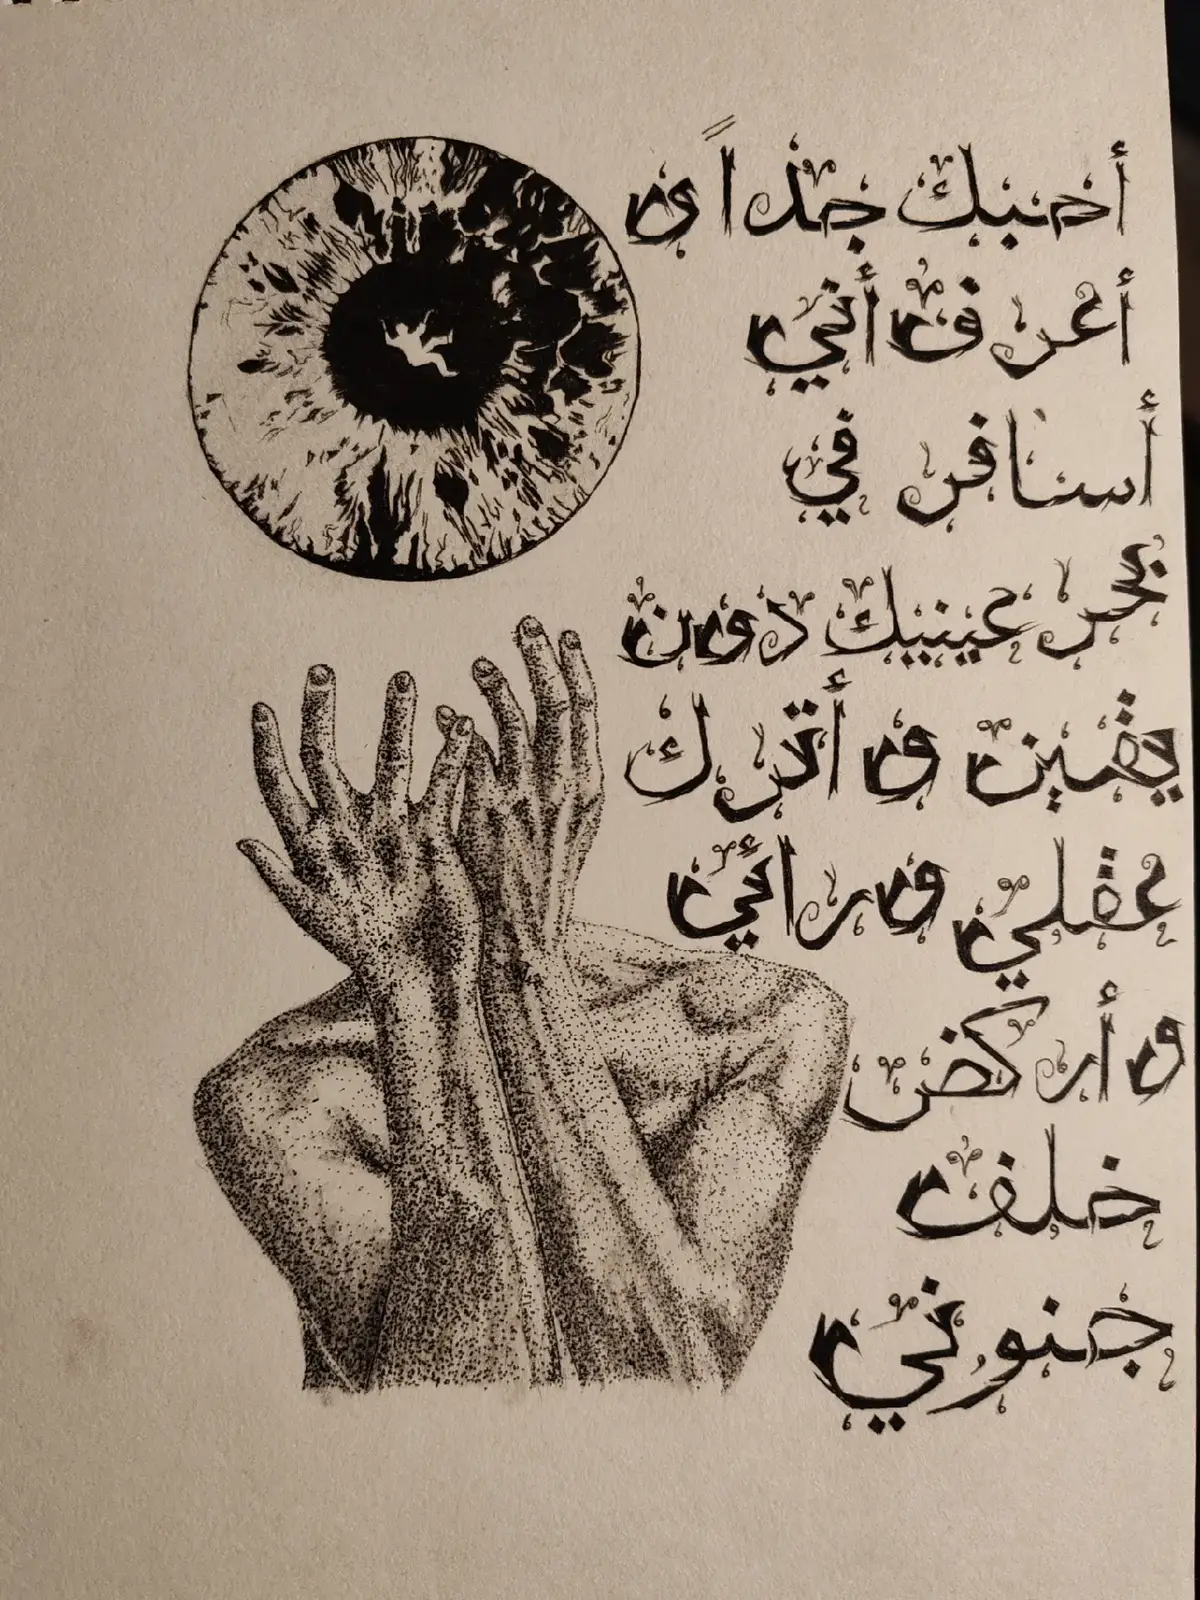 أحبك جداً و
أعرف أني
أسافر في
بحر عينيك دون
يقين و أترك
عقلي ورائي
و أركض
خلف
جنوني